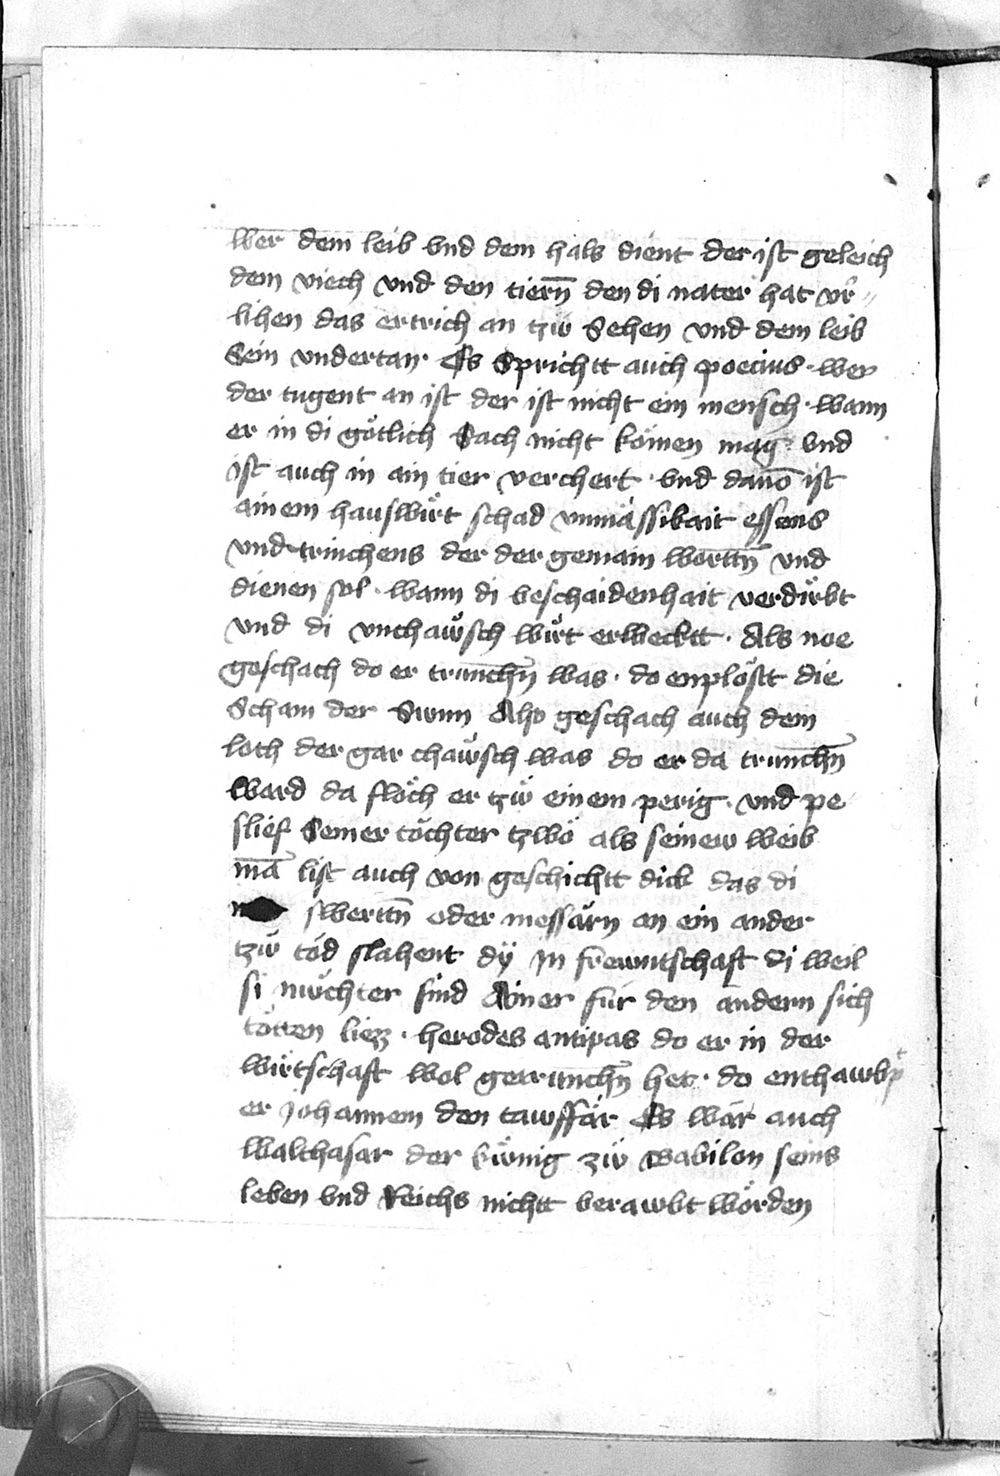 wer dem leib vnd dem hals dient der ist geleich
dem viech vnd den tiern̄ den di nater hat vͦr⸗
lihen das ertrich an tzw̎ Sehen vnd dem leib
Sein vndertan · Es Sprichtt auch poecius · wer
der tugent an ist der ist nicht ein mensch · wann
er in di gótlich Sach nicht kömen mag · vnd
ist auch in ain tier verchert · vnd dauō ist
ainem hauswirt schad vnmässikait essens
vnd trinchens der der gemain worttn̄ vnd
dienen sol · wann di beschaidenhait verdirbt
vnd di vnchaẅsch wirt erwecktt · Als noe
geschach do er trunchn̄ was · do enplöstt die
Scham der Sunn Also geschach auch dem
loth der gar chaẅsch was do er da trunchn̄
ward da flöch er tzẅ einem perig · vnd pe
slief Seiner töchter tzwö als seinew weib
mā list auch von geschichtt dick das di
swerttn̄ oder messärn an ein ander
tzẅ töd slahent dÿ in frewntschaft di weil
si nüchter sind Ainer für den andern sich
tötten liezz · herodes antipas do er in der
wirtschaft wol getrunchn̄ het · do enthawbpt
er johannem den tawffär Es wär auch
walthasar der kẅnig zẅ wabilon seins
leben vnd Reichs nichtt berawbt wörden